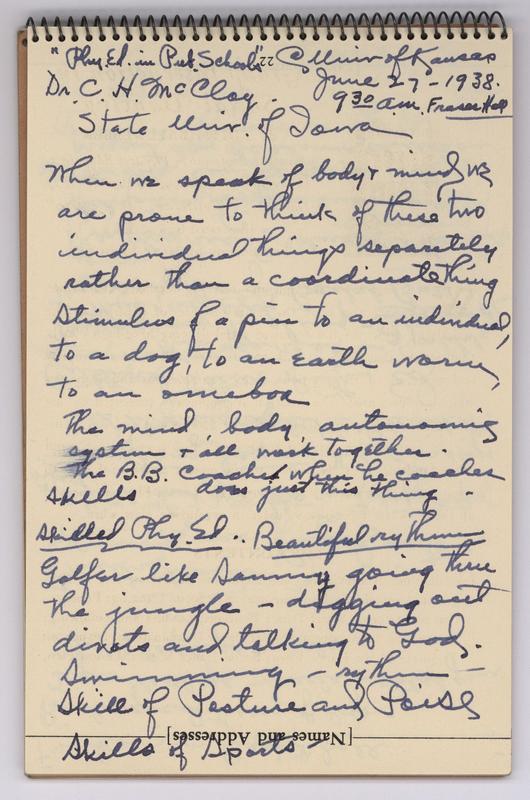 "Phy. Ed. in Pub. Schools" 22 Univ of Kansas
Dr. C. H. McCloy. June 27-1938.
9 30 a.m. Fraser Hall
State Univ. of Iowa
When we speak of body & mind, we
are prone to think of these two
individual things separately
rather than a coordinate thing
Stimulus of a pin to an individual,
to a dog, to an earth worm,
to an omeboa
The mind, body, autonomic
system & all work together.
The B.B. Coaches when he coaches
skills does just this thing.
Skilled Phy. Ed.. Beautiful rythum
Golfer like Sammy going thru
the jungle - digging out
divots and talking to God.
Swimming - rythum -
Skill of Posture and Poise
[Names and Addresses]
Skills of Sports -